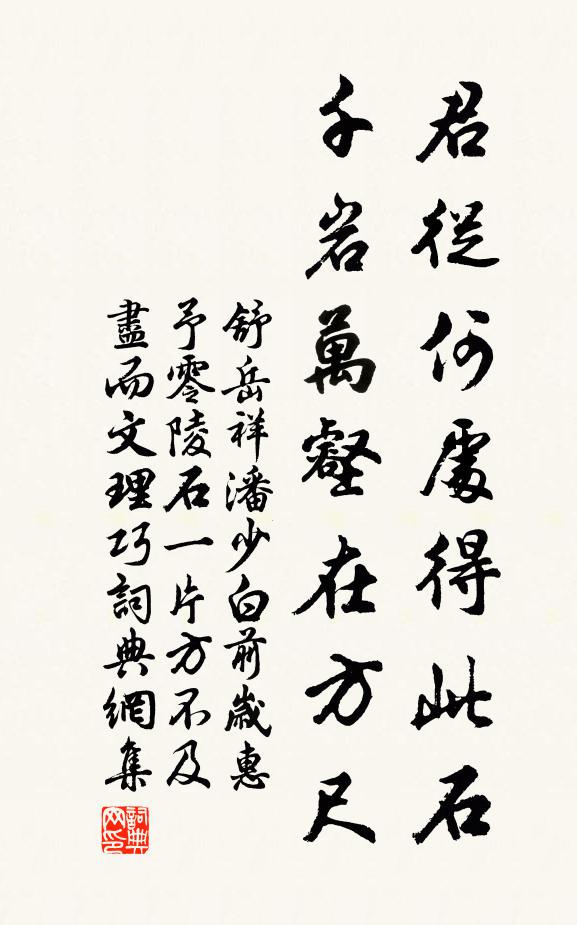 君從何處得此石
千岩萬壑在方尺
舒岳祥潘少白前歲惠
予零陵石一片方不及
盡而文理巧詞典網集
詞典
网印